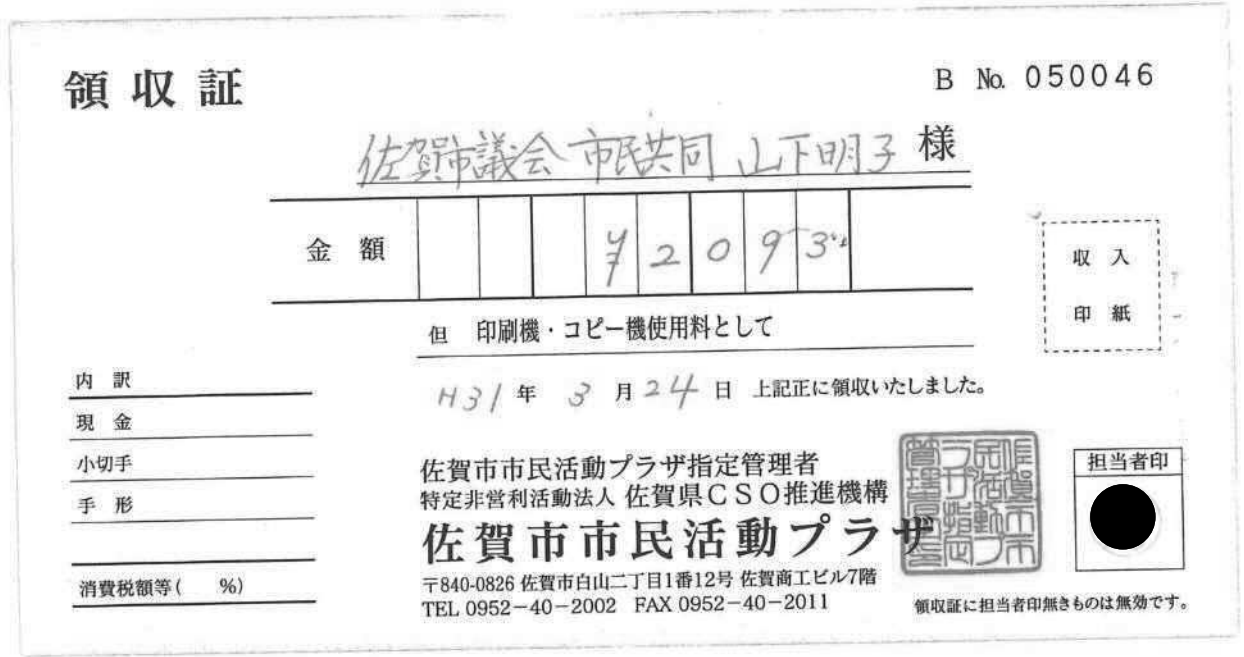 領収証
B No. 050046
佐賀市議会 市民共同 山下明子 様
金額 ¥2093
収入
印紙
但 印刷機・コピー機使用料として
H31年 3月24日 上記正に領収いたしました。
内訳
現金
小切手
手形
消費税額等( %)
佐賀市市民活動プラザ指定管理者
特定非営利活動法人 佐賀県CSO推進機構
佐賀市市民活動プラザ
〒840-0826 佐賀市白山二丁目1番12号 佐賀商工ビル7階
TEL 0952-40-2002 FAX 0952-40-2011
担当者印
領収証に担当者印無きものは無効です。